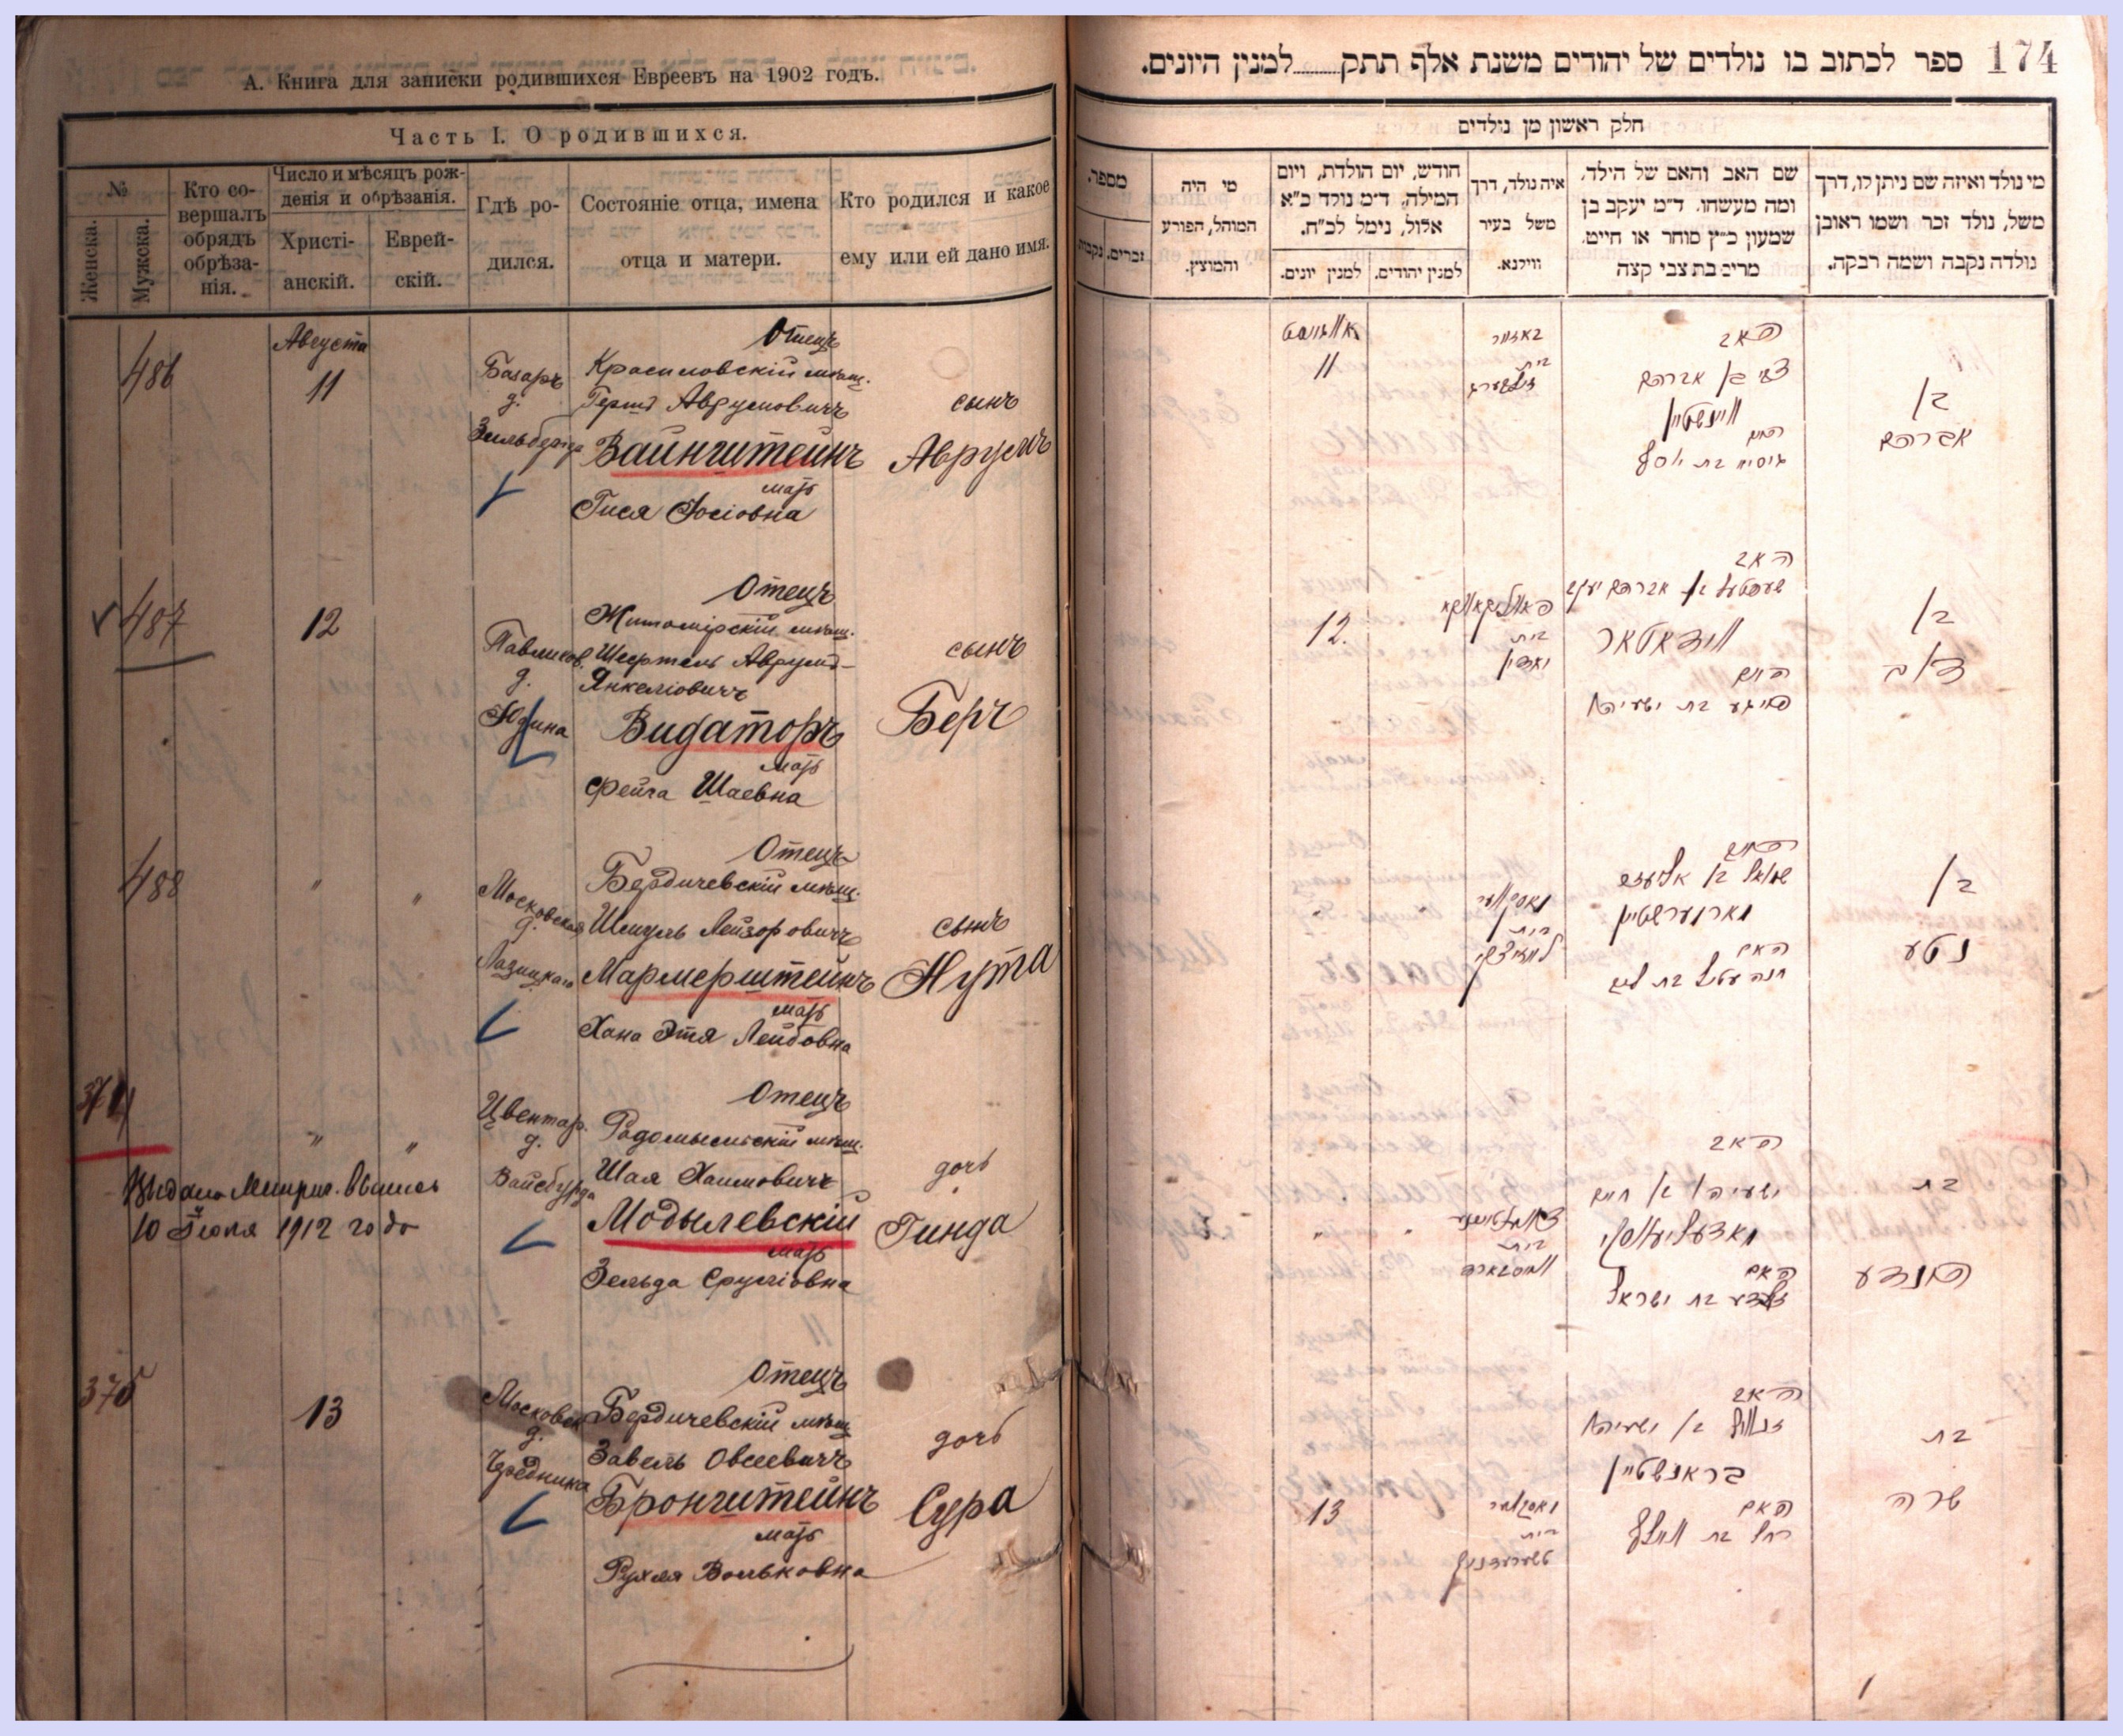 А. Книга для записки родившихся Евреевъ на 1902 годъ.
Часть I. О родившихся.
№
Женска.
Мужеска.
Кто совершалъ обрядъ обрѣзанія.
Число и мѣсяцъ рожденія и обрѣзанія.
Христіанскій.
Еврейскій.
Гдѣ родился.
Состояніе отца, имена отца и матери.
Кто родился и какое ему или ей дано имя.
486
Августа
11
Базарн
д.
Зильберга
Отецъ
Красиловскій мѣщ.
Гершъ Аврумовичъ
Вайнштейнъ
мать
Гися Іосіовна
сынъ
Аврумъ
487
12
Павликов.
д.
Юдина
Отецъ
Житомірскій мѣщ.
Шефтель Аврумъ-
Янкеліовичъ
Видаторъ
мать
Фейга Шаевна
сынъ
Беръ
488
"
"
Московская
д.
Отецъ
Бердичевскій мѣщ.
Шмуль Лейзоровичъ
Мармерштейнъ
мать
Хана Этя Лейбовна
сынъ
Нута
374
"
"
Цвентар.
д.
Вайсбурда
Отецъ
Радомысльскій мѣщ.
Шая Хаимовичъ
Модылевскій
мать
Зельда Срулiовна
дочь
Гинда
Выдана Метрич. Выпись
10 Іюля 1912 года
375
13
Московск
д.
Чредника
Отецъ
Бердичевскій мѣщ
Завель Овсеевичъ
Бронштейнъ
мать
Рухля Вольковна
дочь
Сура
174
ספר לכתוב בו נולדים של יהודים משנת אלף תתק..........למנין היונים.
חלק ראשון מן נולדים
מספר.
זכרים.
נקבות
מי היה המוהל, הפורע והמוצץ.
חודש, יום הולדת, ויום המילה, ד״מ נולד כ״א אלול, נימל לכ״ח.
למנין יונים.
למנין יהודים.
איה נולד, דרך משל בעיר ווילנא.
שם האב והאם של הילד, ומה מעשהו. ד״מ יעקב בן שמעון כ״ץ סוחר או חייט, מרים בת צבי קצה
מי נולד ואיזה שם ניתן לו, דרך משל, נולד זכר ושמו ראובן נולדה נקבה ושמה רבקה.
אויגוסט
11
בית
האב
צבי בן אברהם
וויינשטיין
האם
גיסיא בת יוסף
בן
אברהם
12.
בית
יודין
האב
שעפטעל בן אברהם יעקב
ווידאטאר
האם
פייגע בת ישעיהו
בן
דוב
בית
שמואל בן אליעזר
מארמערשטיין
האם
בן
נטע
"
בית
האב
ישעיהו בן חיים
מאדעליעווסקי
האם
זעלדע בת ישראל
בת
הינדע
13
בית
האב
זאוויל בן ישעיהו
בראנשטיין
האם
רחל בת וועלף
בת
שרה